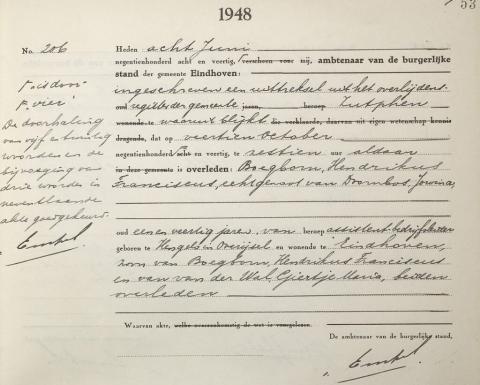 53
1948
No. 206
Heden acht Juni
negentienhonderd acht en veertig, verscheen voor mij, ambtenaar van de burgerlijke
stand der gemeente Eindhoven:
ingeschreven een uittreksel uit het overlijdens-
oud register der gemeente jaren, beroep Zutphen
wonende te waaruit blijkt die verklaarde, daarvan uit eigen wetenschap kennis
dragende, dat op veertien October
negentienhonderd acht en veertig, te zestien uur aldaar
in deze gemeente is overleden: Boegborn, Hendrikus
Franciscus, echtgenoot van Doornbos,
oud een en veertig jaren, van beroep assistent bedrijfsleider
geboren te Hengelo (in Overijsel, en wonende te Eindhoven,
zoon van Boegborn, Hendrikus Franciscus
en van van der Wal, Geertje Maria, beiden
overleden
Waarvan akte, welke overeenkomstig de wet is voorgelezen.
De ambtenaar van de burgerlijke stand,
De doorhaling
van vijf en twintig
woorden en de
bijvoeging van
drie woorden in
nevenstaande
akte goedgekeurd.